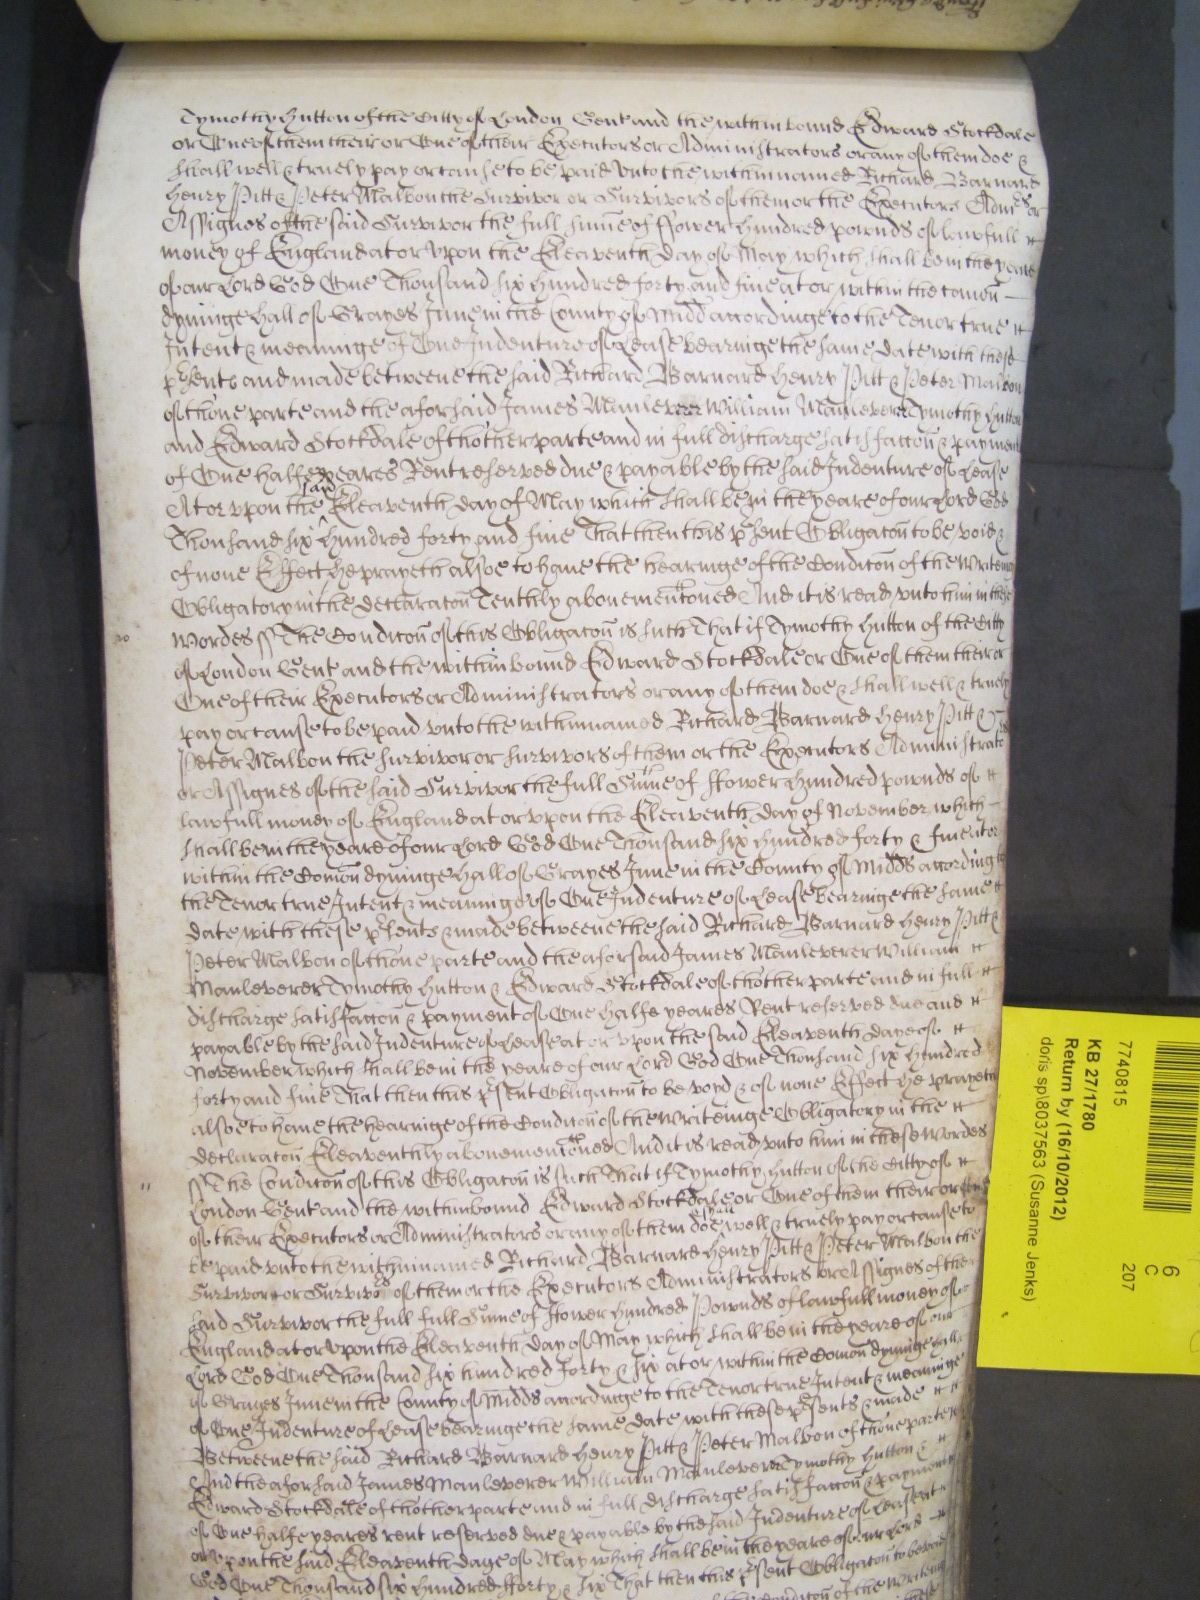 Tymothy Hutton of the Citty of London Gent and the within bound Edward Stockdale
or One of them their or One of their Executors or Administrators or any of them doe &
shall well & truely pay or cause to be paid vnto the within named Richard Barnard
Henry Pitt & Peter Malbon the Survivor or Survivors of them or the Executors Admrs or
Assignes of the said Survivor the full sume of ffower Hundred pownds of lawfull
money of England at or vpon the Eleaventh day of May which shall be in the yeare
of our Lord God One Thousand six hundred forty and five at or within the comon
dyninge hall of Grayes Inne in the County of Midd accordinge to the Tenor true
Intent & meaninge of One Indenture of Lease bearinge the same date with these
psents and made betweene the said Richard Barnard Henry Pitt & Peter Malbon
of thone parte and the aforsaid James Manleverer William Manleverer Tymothy Hutton
and Edward Stockdale of thother parte and in full discharge satisfaccon & payment
of One halfe yeares Rent reserved due & payable by the said Indenture of Lease
At or vpon the said Eleaventh day of May which shall be in the yeare of our Lord God
Thousand six Hundred forty and five That then this psent Obligacon to be void &
of none Effect he prayeth alsoe to haue the hearinge of the Condicon of the Writeing
Obligatory in the declaracon Tenthly abouemencioned And it is read vnto him in these
10
wordes ss The Condicon of this Obligacon is such That if Tymothy Hutton of the Citty
of London Gent and the within bound Edward Stockdale or One of them their or
One of their Executors or Administrators or any of them doe & shall well & truely
pay or cause to be paid vnto the within named Richard Barnard Henry Pitt &
Peter Malbon the survivor or survivors of them or the Executors Administrators
or Assignes of the said Survivor the full Sume of ffower Hundred pownds of
lawfull money of England at or vpon the Eleaventh day of November which
shall be in the yeare of our Lord God One Thousand six hundred forty & five at or
within the Comon dyninge hall of Grayes Inne in the County of Midds according to
the Tenor true Intent & meaninge of One Indenture of Lease bearinge the same
date with these psents & made betweene the said Richard Barnard Henry Pitt &
Peter Malbon of thone parte and the aforsaid James Manleverer William
Manleverer Tymothy Hutton & Edward Stockdale of thother parte and in full
discharge satisfaccon & payment of One halfe yeares Rent reserved due and
payable by the said Indenture of Lease at or vpon the said Eleaventh daye of
November which shall be in the yeare of our Lord God One Thousand six hundred
forty and five That then this psent Obligacon to be voyd & of none Effect he prayeth
alsoe to haue the hearinge of the Condicon of the Writeinge Obligatory in the
declaracon Eleaventhly abouemencioned And it is read vnto him in these wordes
11
ss The Condicon of this Obligacon is such That if Tymothy Hutton of the Citty of
London Gent and the within bound Edward Stockdale or One of them their or One
of their Executors or Administrators or any of them doe & shall well & truely pay or cause to
be paid vnto the within named Richard Barnard Henry Pitt & Peter Malbon the
Survivor or Survivors of them or the Executors Administrators or Assignes of the
said Survivor the full full Sume of ffower hundred Pownds of lawfull money of
England at or vpon the Eleaventh day of May which shall be in the yeare of our
Lord God One Thousand six hundred forty & six at or within the Comon dyninge hall
of Grayes Inne in the County of Midds accordinge to the Tenor true Intent & meaninge
of One Indenture of Lease bearinge the same date with these psents & made
Betweene the said Richard Barnard Henry Pitt & Peter Malbon of thone parte
And the aforsaid James Manleverer William Manleverer Tymothy Hutton &
Edward Stockdale of thother parte and in full discharge satisfaccon & payment
of One halfe yeares rent reserved due & payable by the said Indenture of Lease at
or vpon the said Eleaventh daye of May which shall be in the yeare of our Lord
God One Thousand six Hundred fforty & six That then this psent Obligacon to be void
the Condicon of the Writeing
7740815
KB 27/1780
Return by (16/10/2012)
doris sp\8037563 (Susanne Jenks)
6
C
207